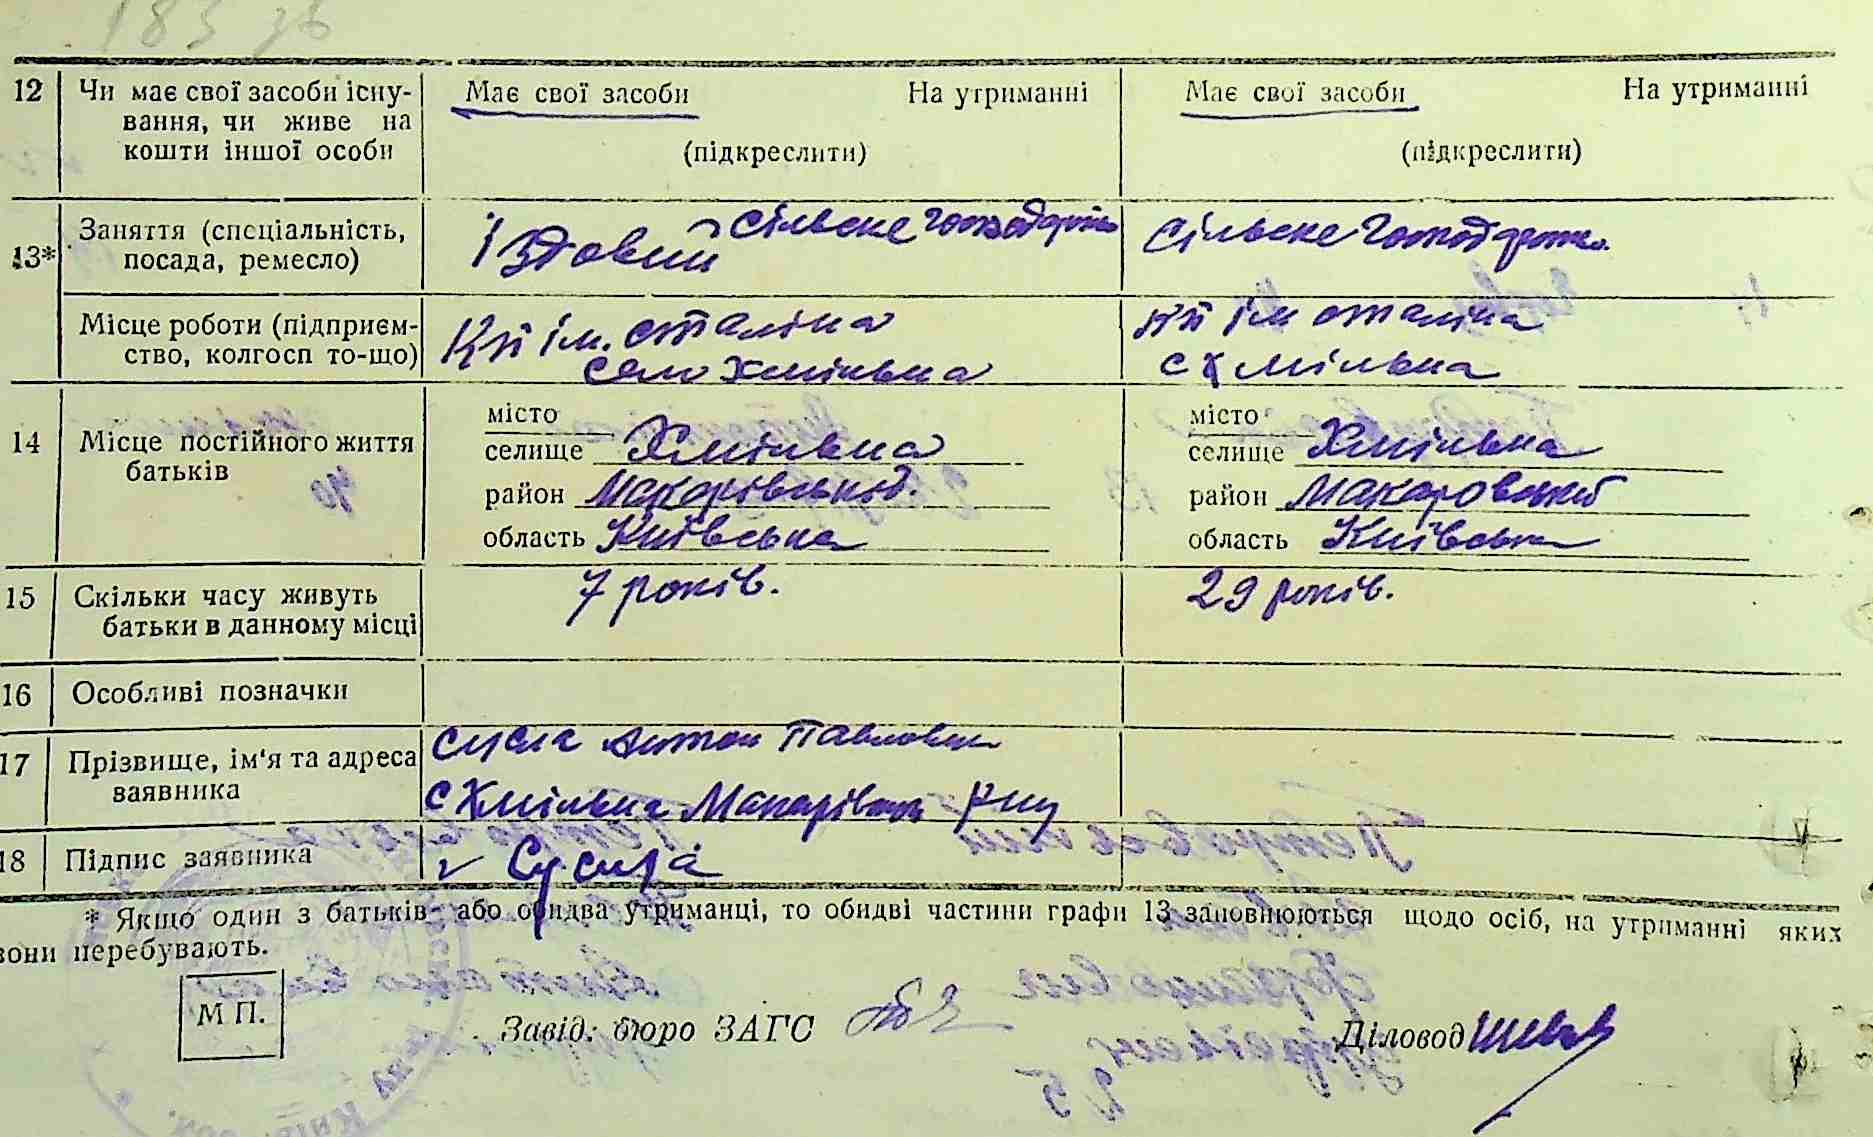 183 зв
12 Чи має свої засоби існу- Має свої засоби На утриманні Має свої засоби На утриманні
вання, чи живе на
кошти іншої особи (підкреслити) (підкреслити)
Заняття (спеціальність, Їздовий сільске Сільске
13* посада, ремесло)
Місце роботи (підприєм- Кп ім. сталіна кп ім сталіна
ство, колгосп то-що) село Хмільвна с Хмільвна
місто місто
14 Місце постійного життя селище Хмільвна селище Хмільвна
батьків район район Макаровский
область Київська область Київська
15 Скільки часу живуть 7 років. 29 років.
батьки в данному місці
16 Особливі позначки
Антон Павлович
17 Прізвище, ім'я та адреса
заявника с Хмільвна
18 Підпис заявника
* Якщо один з батьків або обидва утриманці, то обидві частини графи 13 заповнюються щодо осіб, на утриманні яких
вони перебувають.
М П.
Завід. бюро ЗАГС Діловод